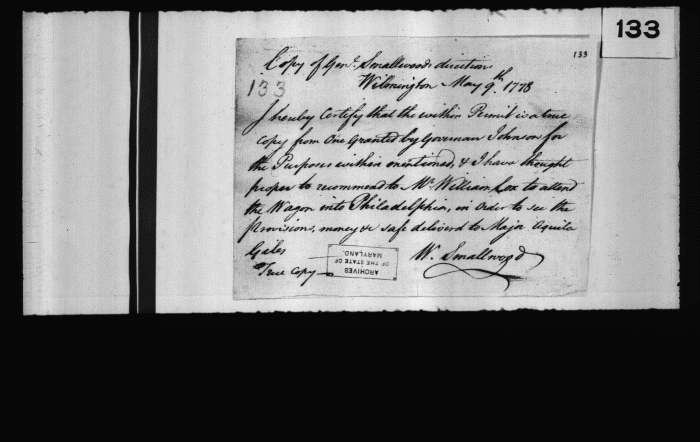 133
133
Copy of Genl. Smallwoods direction
133
Wilmington May 9th. 1778
I hereby Certify that the within Permit is a true
Copy from One Granted by Governour Johnson for
the Purposes within mentioned, & I have thought
proper to recommend to Mr. William Cox to attend
the Wagon into Philadelphia, in Order to see the
Provisions, money &c safe deliverd to Major Aquila
Giles
W. Smallwood
True Copy
ARCHIVES
OF THE STATE OF
MARYLAND.